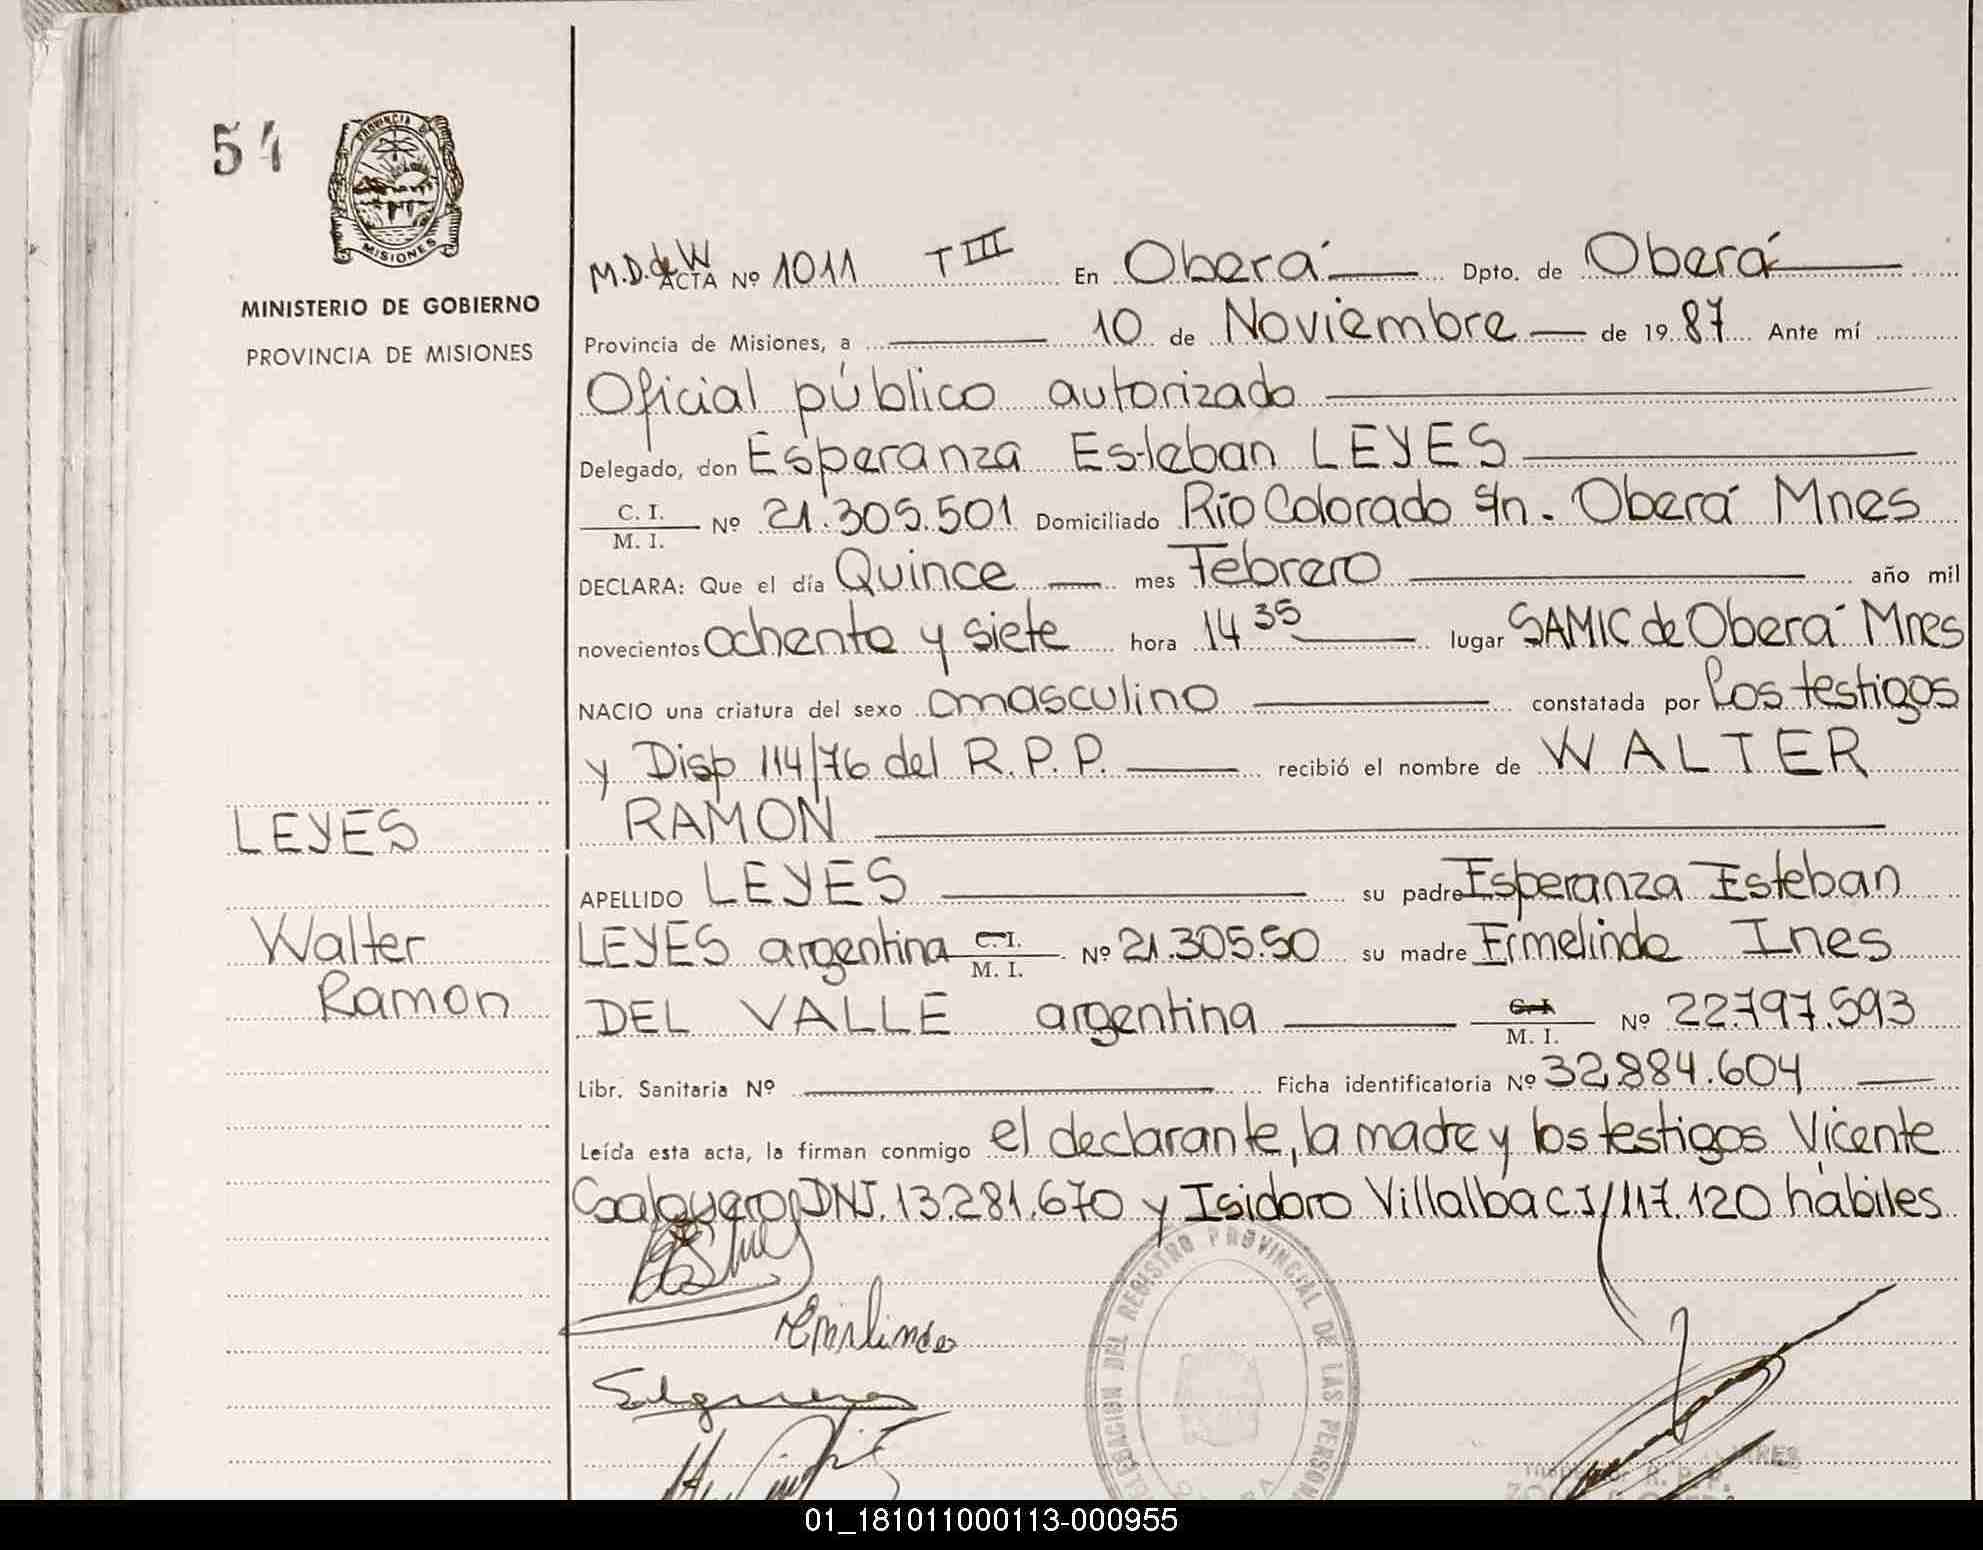 54
PROVINCIA DE
MISIONES
MINISTERIO DE GOBIERNO
PROVINCIA DE MISIONES
M.D. de W ACTA Nº 1011 T III En Oberá Dpto. de Oberá
Provincia de Misiones, a 10 de Noviembre de 1987 Ante mí
Oficial público autorizado
Delegado, don Esperanza Esteban LEYES
C. I. / M. I. Nº 21.305.501 Domiciliado Río Colorado s/n. Oberá Mnes
DECLARA: Que el día Quince mes Febrero año mil
novecientos ochenta y siete hora 14 35 lugar SAMIC de Oberá Mnes
NACIO una criatura del sexo masculino constatada por los testigos
y Disp 114/76 del R.P.P. recibió el nombre de WALTER
RAMON
APELLIDO LEYES su padre Esperanza Esteban
LEYES argentina C. I. / M. I. Nº 21.305.50 su madre Ermelinda Ines
DEL VALLE argentina C. I. / M. I. Nº 22.797.593
Libr. Sanitaria Nº Ficha identificatoria Nº 32.884.604
Leída esta acta, la firman conmigo el declarante, la madre y los testigos Vicente
DNI. 13.281.670 y Isidoro Villalba C.I/117.120 hábiles
LEYES
Walter
Ramon
Ermlinda
DELEGACION DEL REGISTRO PROVINCIAL DE LAS PERSON
01_181011000113-000955